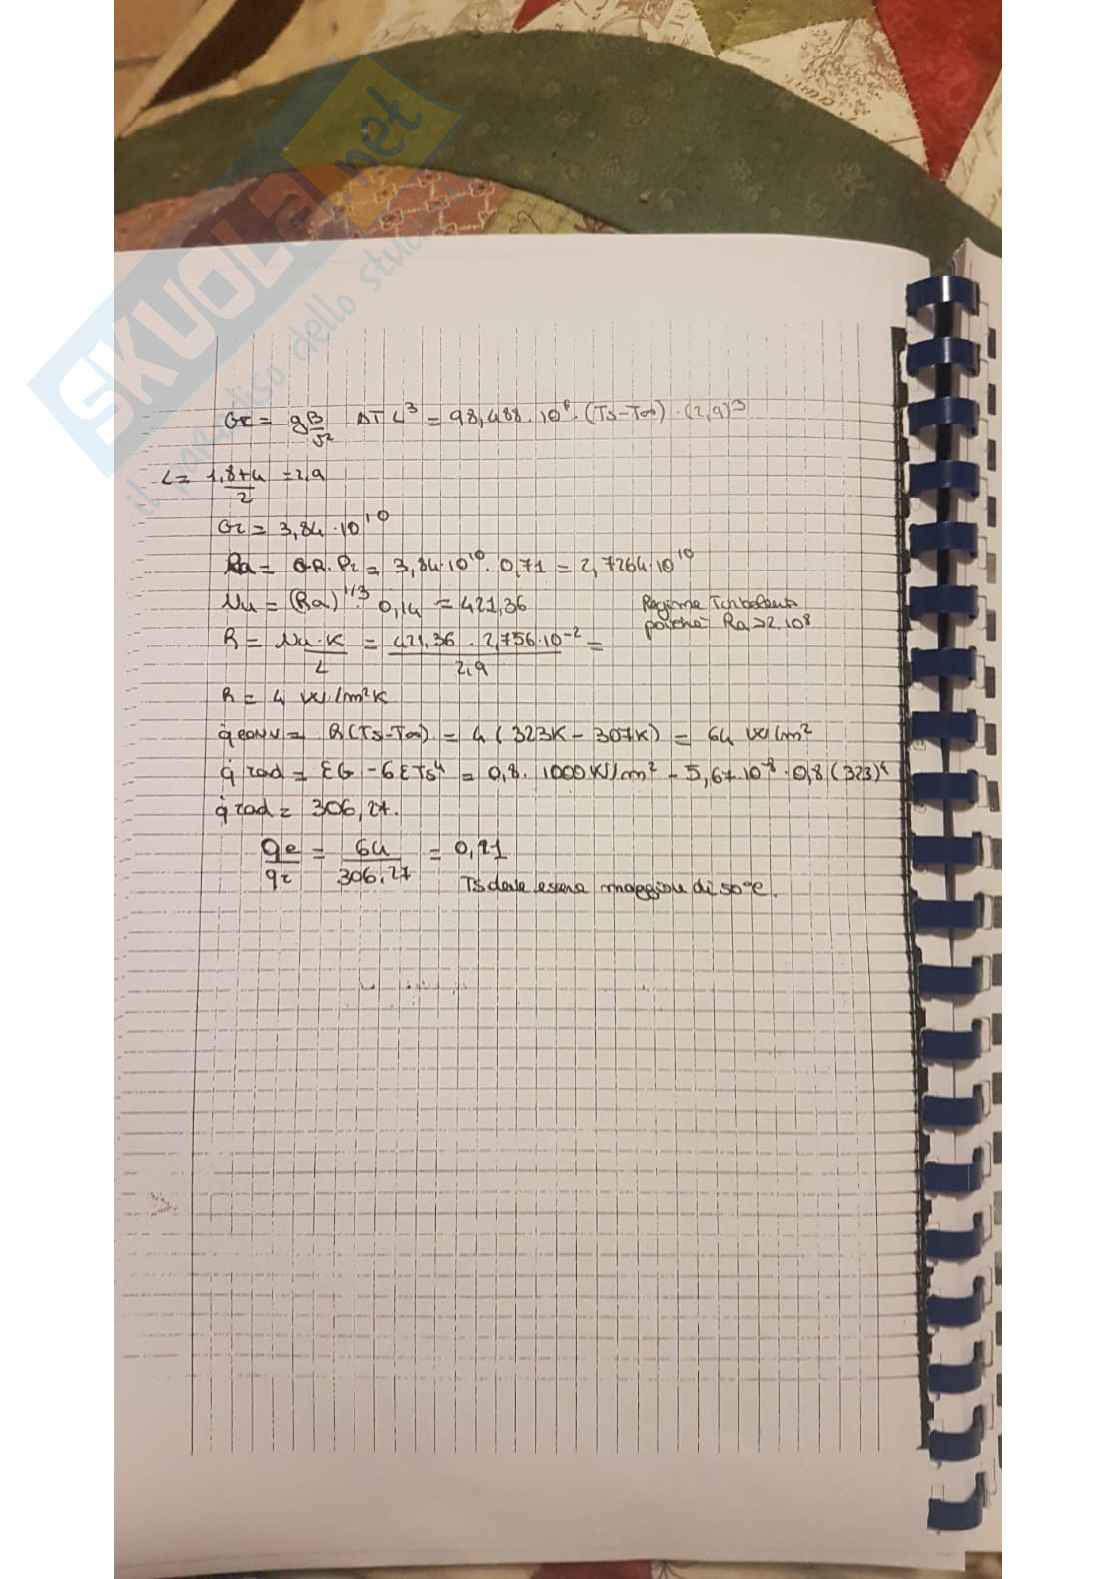 SKUOLA.net
il paradiso dello stud
Gr = gβ/ν² ΔT L³ = 98,488·10⁶·(Ts-T∞)·(2,9)³
L = 1,8+4/2 = 2,9
Gr = 3,84·10¹⁰
Ra = GR.Pr = 3,84·10¹⁰·0,71 = 2,7264·10¹⁰
Nu = (Ra)^1/3· 0,14 = 421,36
Regime Turbolento
poichè Ra>2·10⁸
h = Nu·K/L = 421,36 · 2,756·10⁻²/2,9 =
h = 4 W/m²K
q̇conv = h(Ts-T∞) = 4(323K - 307K) = 64 W/m²
q̇rad = εG - σεTs⁴ = 0,8·1000W/m² - 5,67·10⁻⁸·0,8(323)⁴
q̇rad = 306,27.
qc/qr = 64/306,27 = 0,21
Ts deve essere maggiore di 50°C.